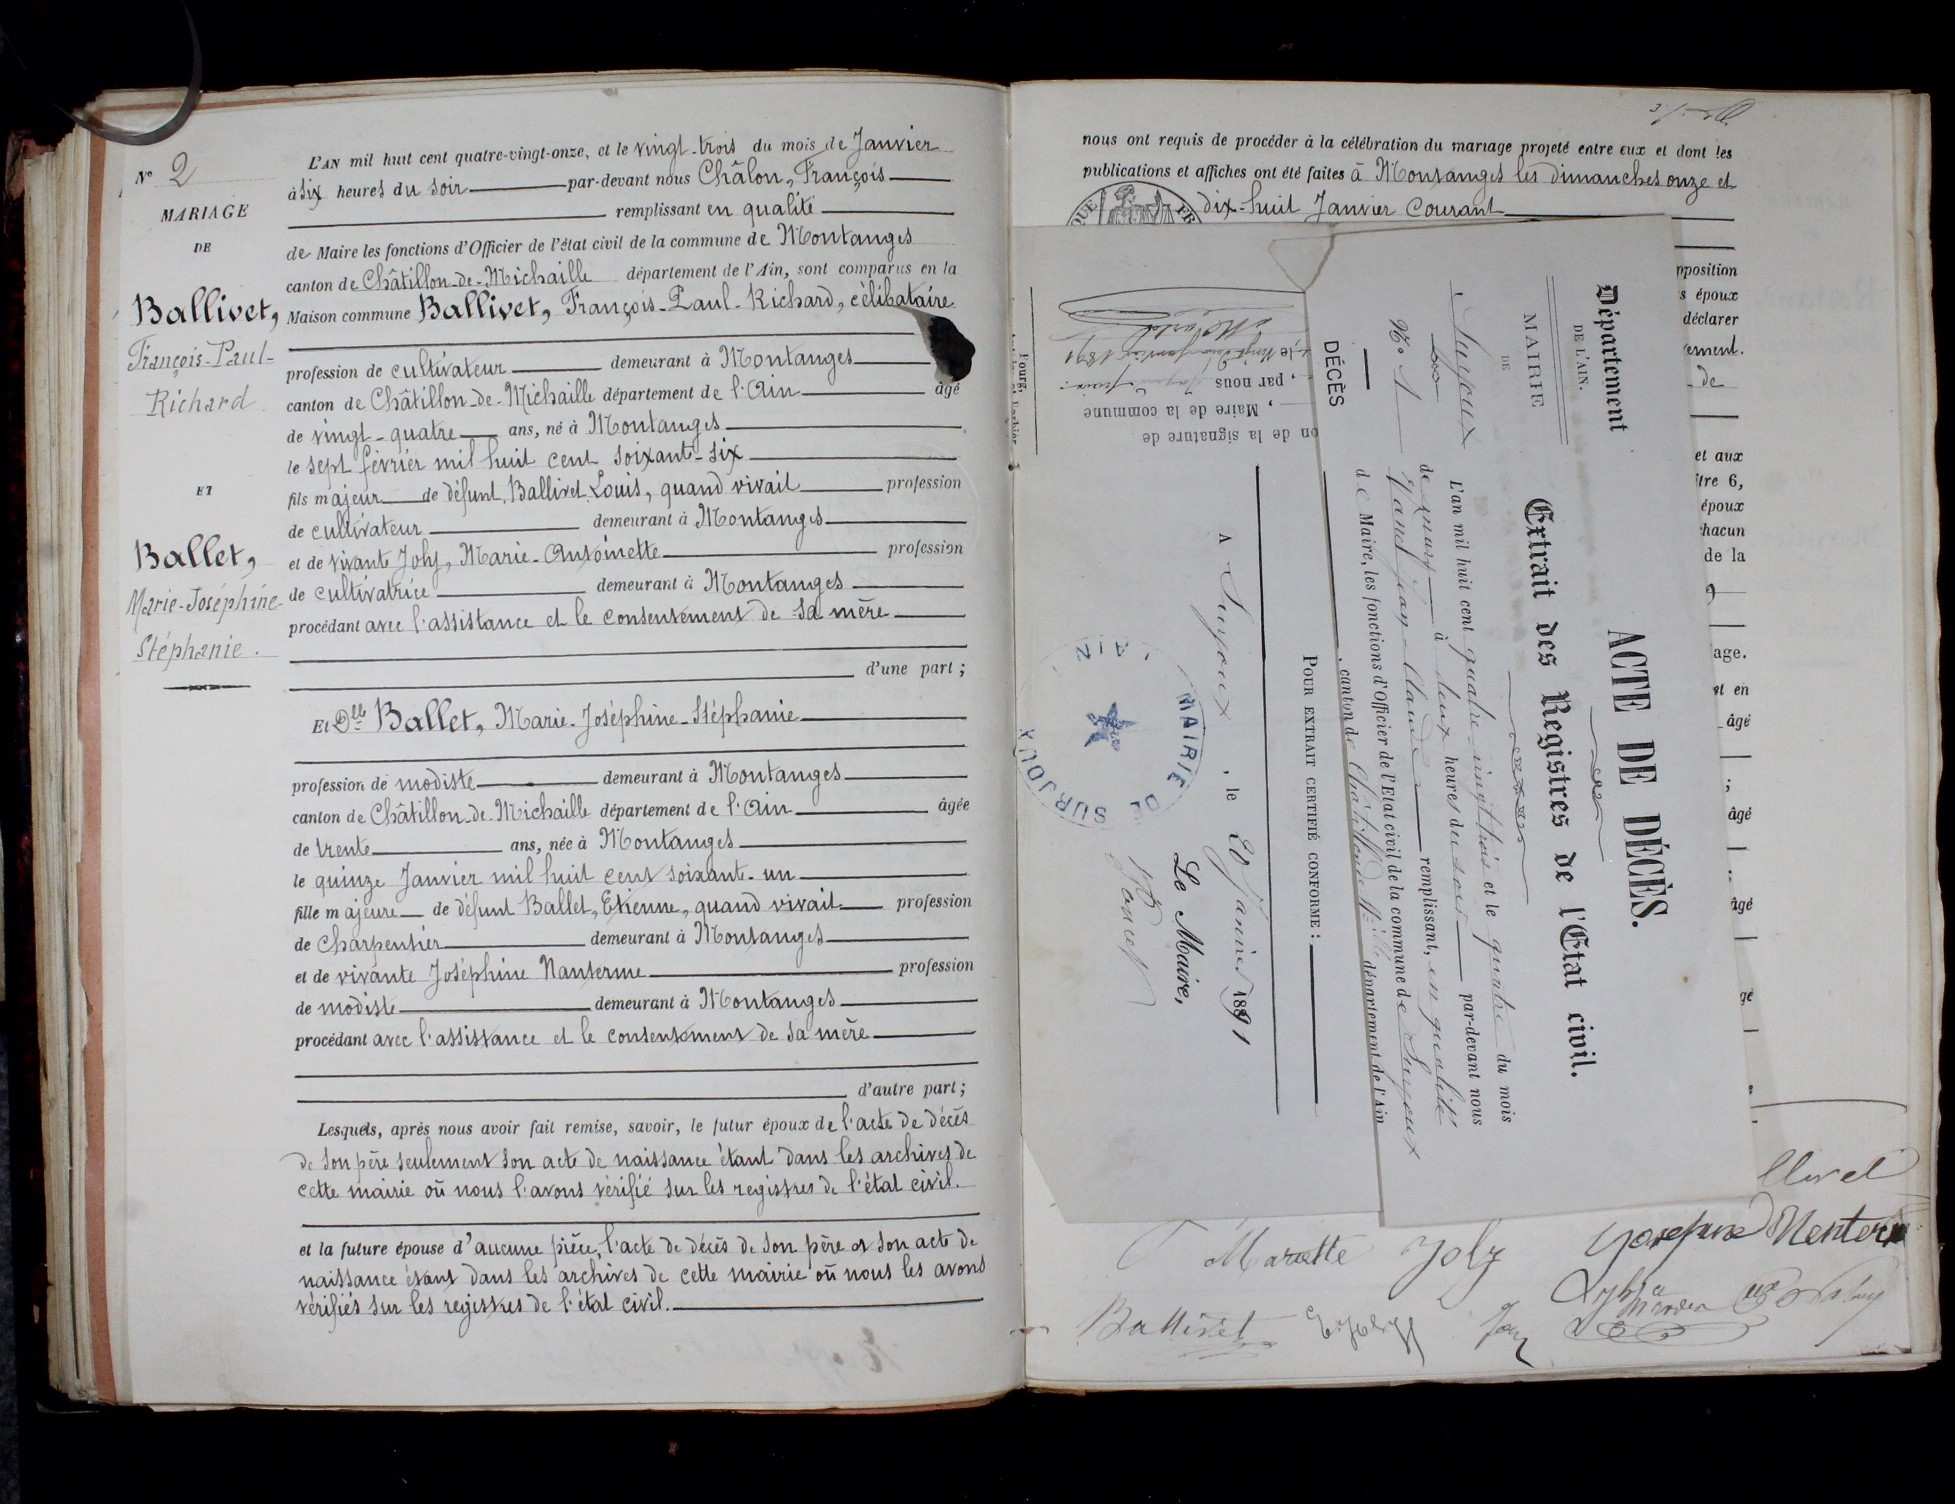 N° 2
MARIAGE
DE
Ballivet,
François-Paul-
Richard
ET
Ballet,
Marie-Joséphine-
Stéphanie.
L'AN mil huit cent quatre-vingt-onze, et le vingt-trois du mois de Janvier
à six heures du soir par-devant nous Châlon, François
remplissant en qualité
de Maire les fonctions d'Officier de l'état civil de la commune de Montanges
canton de Châtillon-de-Michaille département de l'Ain, sont comparus en la
Maison commune Ballivet, François-Paul-Richard, célibataire
profession de cultivateur demeurant à Montanges
canton de Châtillon-de-Michaille département de l'Ain âgé
de vingt-quatre ans, né à Montanges
le sept février mil huit cent soixante-six
fils majeur de défunt Ballivet Louis, quand vivait profession
de cultivateur demeurant à Montanges
et de vivante Joly, Marie-Antoinette profession
de cultivatrice demeurant à Montanges
procédant avec l'assistance et le consentement de sa mère
d'une part ;
Et Dlle Ballet, Marie-Joséphine-Stéphanie
profession de modiste demeurant à Montanges
canton de Châtillon-de-Michaille département de l'Ain âgée
de trente ans, née à Montanges
le quinze Janvier mil huit cent soixante-un
fille majeure de défunt Ballet, Etienne, quand vivait profession
de charpentier demeurant à Montanges
et de vivante Joséphine Nanterme profession
de modiste demeurant à Montanges
procédant avec l'assistance et le consentement de sa mère
d'autre part ;
Lesquels, après nous avoir fait remise, savoir, le futur époux de l'acte de décès
de son père seulement son acte de naissance étant dans les archives de
cette mairie où nous l'avons vérifié sur les registres de l'état civil.
et la future épouse d'aucune pièce, l'acte de décès de son père et son acte de
naissance étant dans les archives de cette mairie où nous les avons
vérifiés sur les registres de l'état civil.
nous ont requis de procéder à la célébration du mariage projeté entre eux et dont les
publications et affiches ont été faites à Montanges les dimanches onze et
dix-huit Janvier courant
pposition
s époux
déclarer
ement.
de
et aux
itre 6,
époux
hacun
de la
age.
et en
âgé
;
âgé
âgé
gé
Département
DE L'AIN.
MAIRIE
DE
Surjoux
DÉCÈS
N° 1
ACTE DE DÉCÈS.
Extrait des Registres de l'Etat civil.
L'an mil huit cent quatre vingt trois et le quatre du mois
de mars à deux heures du soir par-devant nous
Jean Claude remplissant, en qualité
de Maire, les fonctions d'Officier de l'Etat civil de la commune de Surjoux
, canton de Châtillon de Mlle département de l'Ain
POUR EXTRAIT CERTIFIÉ CONFORME :
A Surjoux, le 20 Janvier 1891
Le Maire,
MAIRIE DE SURJOUX
AIN
on de la signature de
, Maire de la commune
, par nous
, le vingt Janvier 1891
Marette Joly
Ballivet